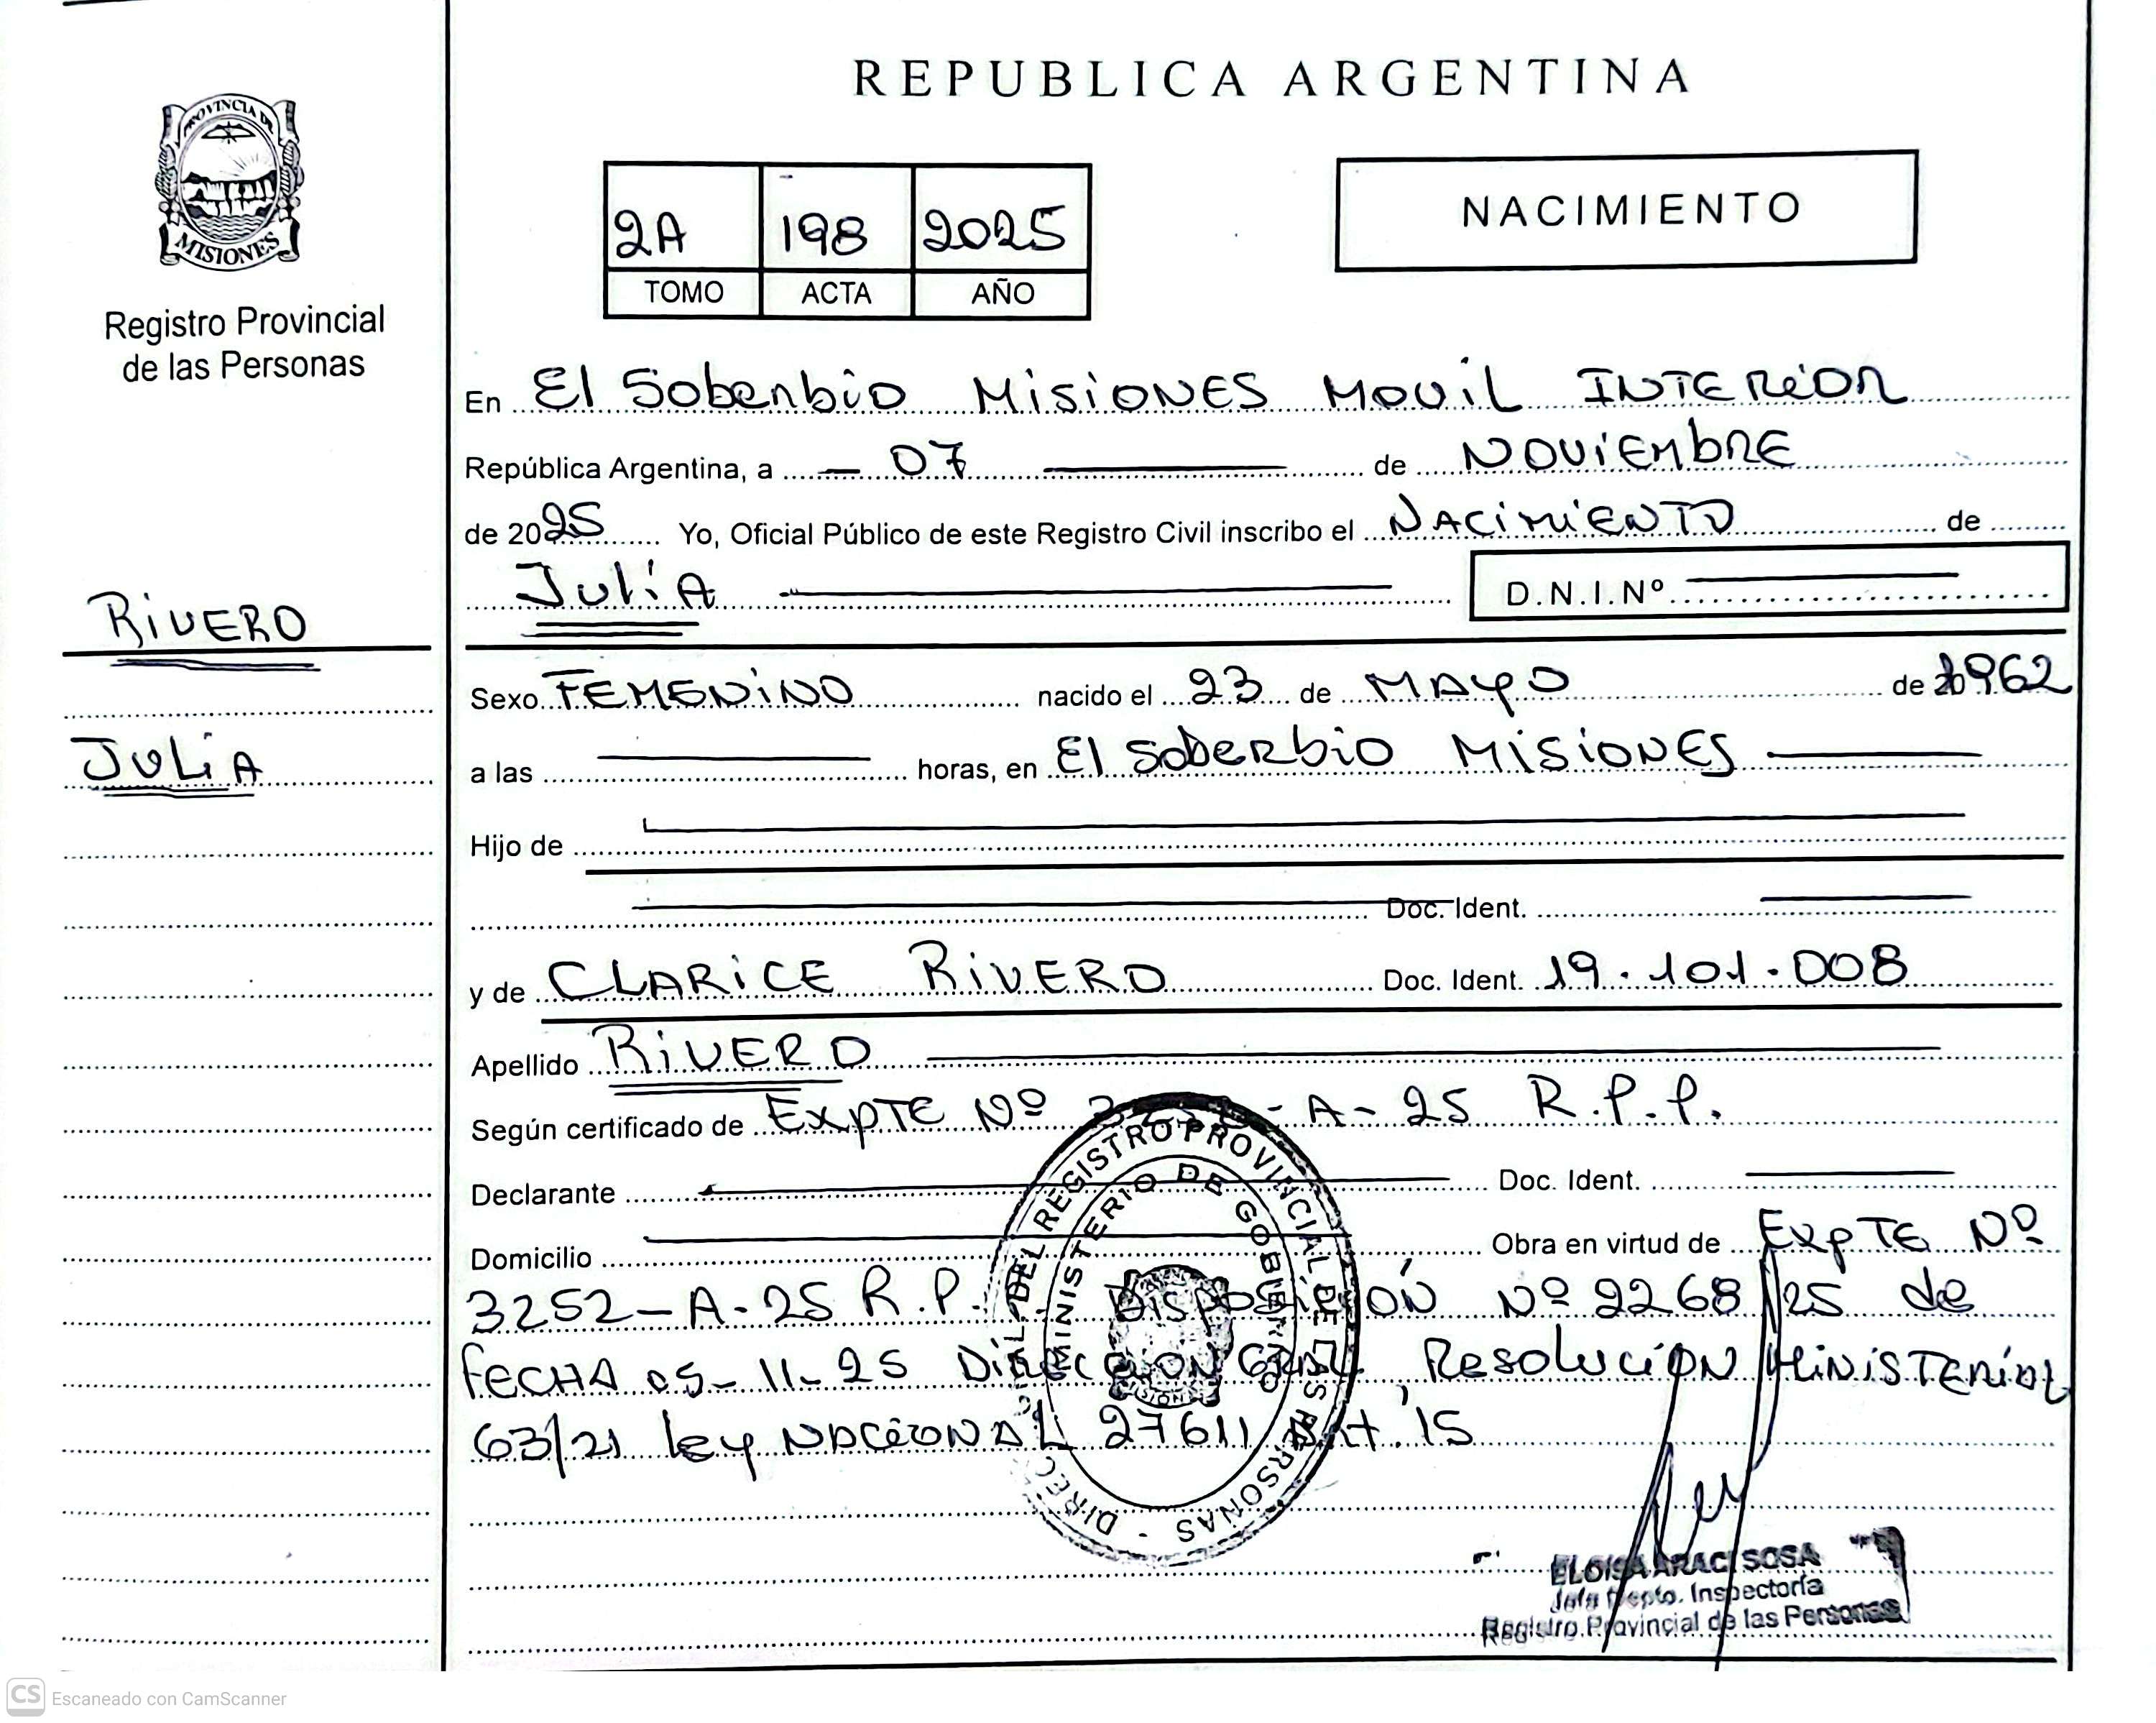 REPUBLICA ARGENTINA
PROVINCIA DE
MISIONES
Registro Provincial
de las Personas
2A 198 2025
TOMO ACTA AÑO
NACIMIENTO
En El Soberbio MISIONES MOVIL INTERIOR
República Argentina, a 07 de NOVIEMBRE
de 2025 Yo, Oficial Público de este Registro Civil inscribo el NACIMIENTO de
JULIA D.N.I.Nº
RIVERO
JULIA
Sexo FEMENINO nacido el 23 de MAYO de 1962
a las horas, en El SOBERBIO MISIONES
Hijo de
Doc. Ident.
y de CLARICE RIVERO Doc. Ident. 19.101.008
Apellido RIVERO
Según certificado de EXPTE Nº 3252-A-25 R.P.P.
Declarante Doc. Ident.
Domicilio Obra en virtud de EXPTE Nº
3252-A-25 R.P. DISPOSICIÓN Nº 2268/25 de
FECHA 05-11-25 DIRECCION GRAL, Resolución MINISTERIAL
63/21 ley NACIONAL 27611 Art. 15
DEL REGISTRO PROVINCIAL DE LAS PERSONAS - DIREC
MINISTERIO DE GOBIERNO
ELOISA ARACI SOSA
Jefa Depto. Inspectoría
Registro Provincial de las Personas
CS Escaneado con CamScanner